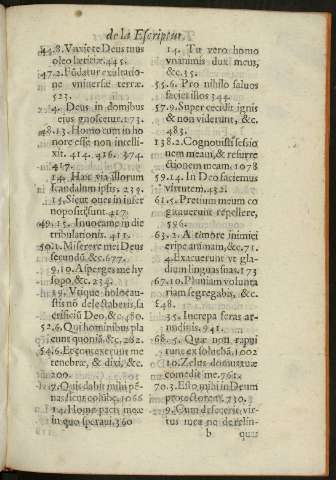 de la Escriptur.
44.8. Vnxit te Deus tuus
oleo lætitiæ. 445.
47.2. Fūdatur exultatio-
ne vniuersæ terræ.
523.
4. Deus in domibus
eius gnoscetur. 173.
48.13. Homo cum in ho
nore esset non intelli-
xit. 414. 426. 374.
427.
14. Hæc via illorum
scandalum ipsis. 239.
15. Sicut oues in infer
no positi sunt. 417
49.15. Inuoca me in die
tribulationis. 411.
50.1. Miserere mei Deus
secundū &c. 677.
9. 10. Asperges me hy
sopo &c. 234.
19. Vtique holocau-
stis nō delectaberis, sa
crificiū Deo, &c. 480.
52.6. Qui hominibus pla
cent quoniā &c. 262.
54.6. Et contexerunt me
tenebræ, & dixi, &c.
200.
7. Quis dabit mihi pē-
nas sicut colūbæ. 1066
14. Homo pacis meæ
in quo speraui. 360
14. Tu vero homo
vnanimis dux meus,
&c. 35.
55.6. Pro nihilo saluos
facies illos 344.
57.9. Super cecidit ignis
& non viderunt, &c.
483.
138.2. Cognouisti sessio
nem meam, & resurre
ctionem meam. 1078
59.14. In Deo faciemus
virtutem. 432.
61.5. Pretium meum co
gitauerunt repellere,
596.
63.2. A timore inimici
eripe animam, &c. 71.
4. Exacuerunt vt gla
dium linguas suas. 173
67.10. Pluuiam volunta
riam segregabis, &c.
548.
35. Increpa feras ar-
undinis. 941.
68.5. Quæ non rapui
tunc exsoluebā. 1002
10. Zelus domus tuæ
comedit me. 761.
70.3. Esto mihi in Deum
protectorem. 730.
9. Cum defecerit vir-
tus mea ne derelin-
b quas